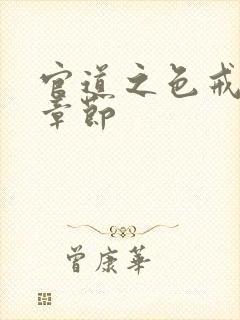 官道之色戒
章節
曾康華